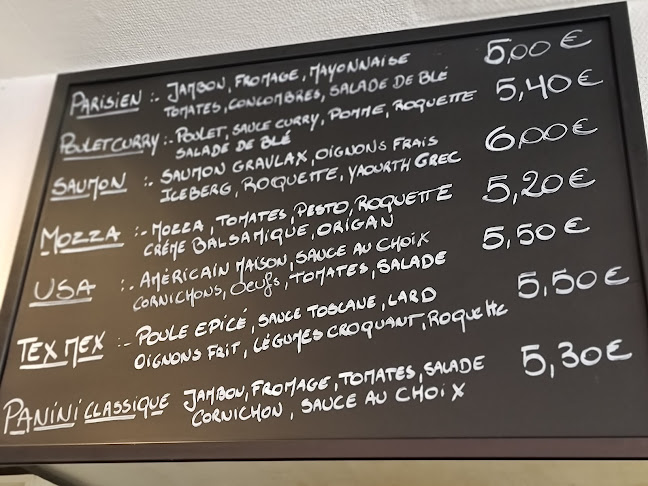 PARISIEN :- JAMBON, FROMAGE, MAYONNAISE 5,00 €
TOMATES, CONCOMBRES, SALADE DE BLÉ
POULET CURRY :- POULET, SAUCE CURRY, POMME, ROQUETTE 5,40 €
SALADE DE BLÉ
SAUMON :- SAUMON GRAVLAX, OIGNONS FRAIS 6,00 €
ICEBERG, ROQUETTE, YAOURTH GREC
MOZZA :- MOZZA, TOMATES, PESTO, ROQUETTE 5,20 €
CRÈME BALSAMIQUE, ORIGAN
USA :- AMÉRICAIN MAISON, SAUCE AU CHOIX 5,50 €
CORNICHONS, OEUFS, TOMATES, SALADE
TEX MEX :- POULE EPICÉ, SAUCE TOSCANE, LARD 5,50 €
OIGNONS FRIT, LÉGUMES CROQUANT, ROQUETTE
PANINI CLASSIQUE JAMBON, FROMAGE, TOMATES, SALADE 5,30 €
CORNICHON, SAUCE AU CHOIX